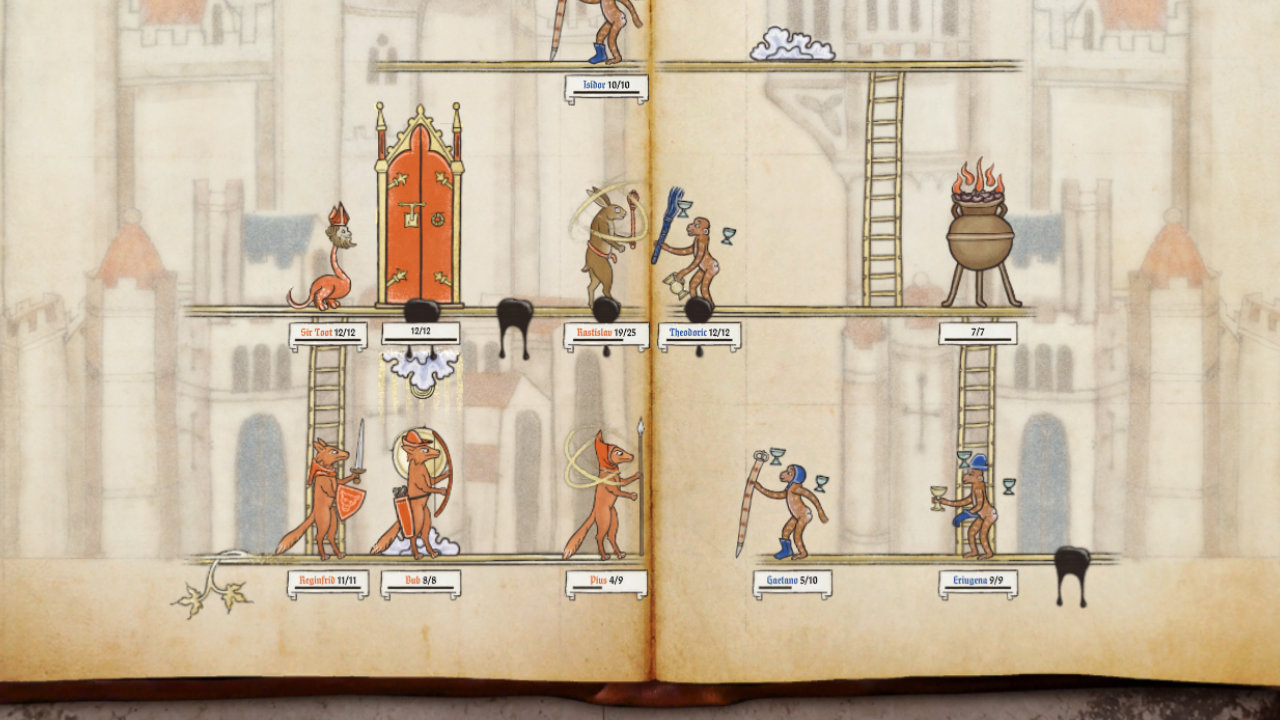 Isidor 10/10
Sir Toot 12/12
12/12
Rastislav 19/25
Theodoric 12/12
7/7
Reginfrid 11/11
Bub 8/8
Pius 4/9
Gaetano 5/10
Eriugena 9/9